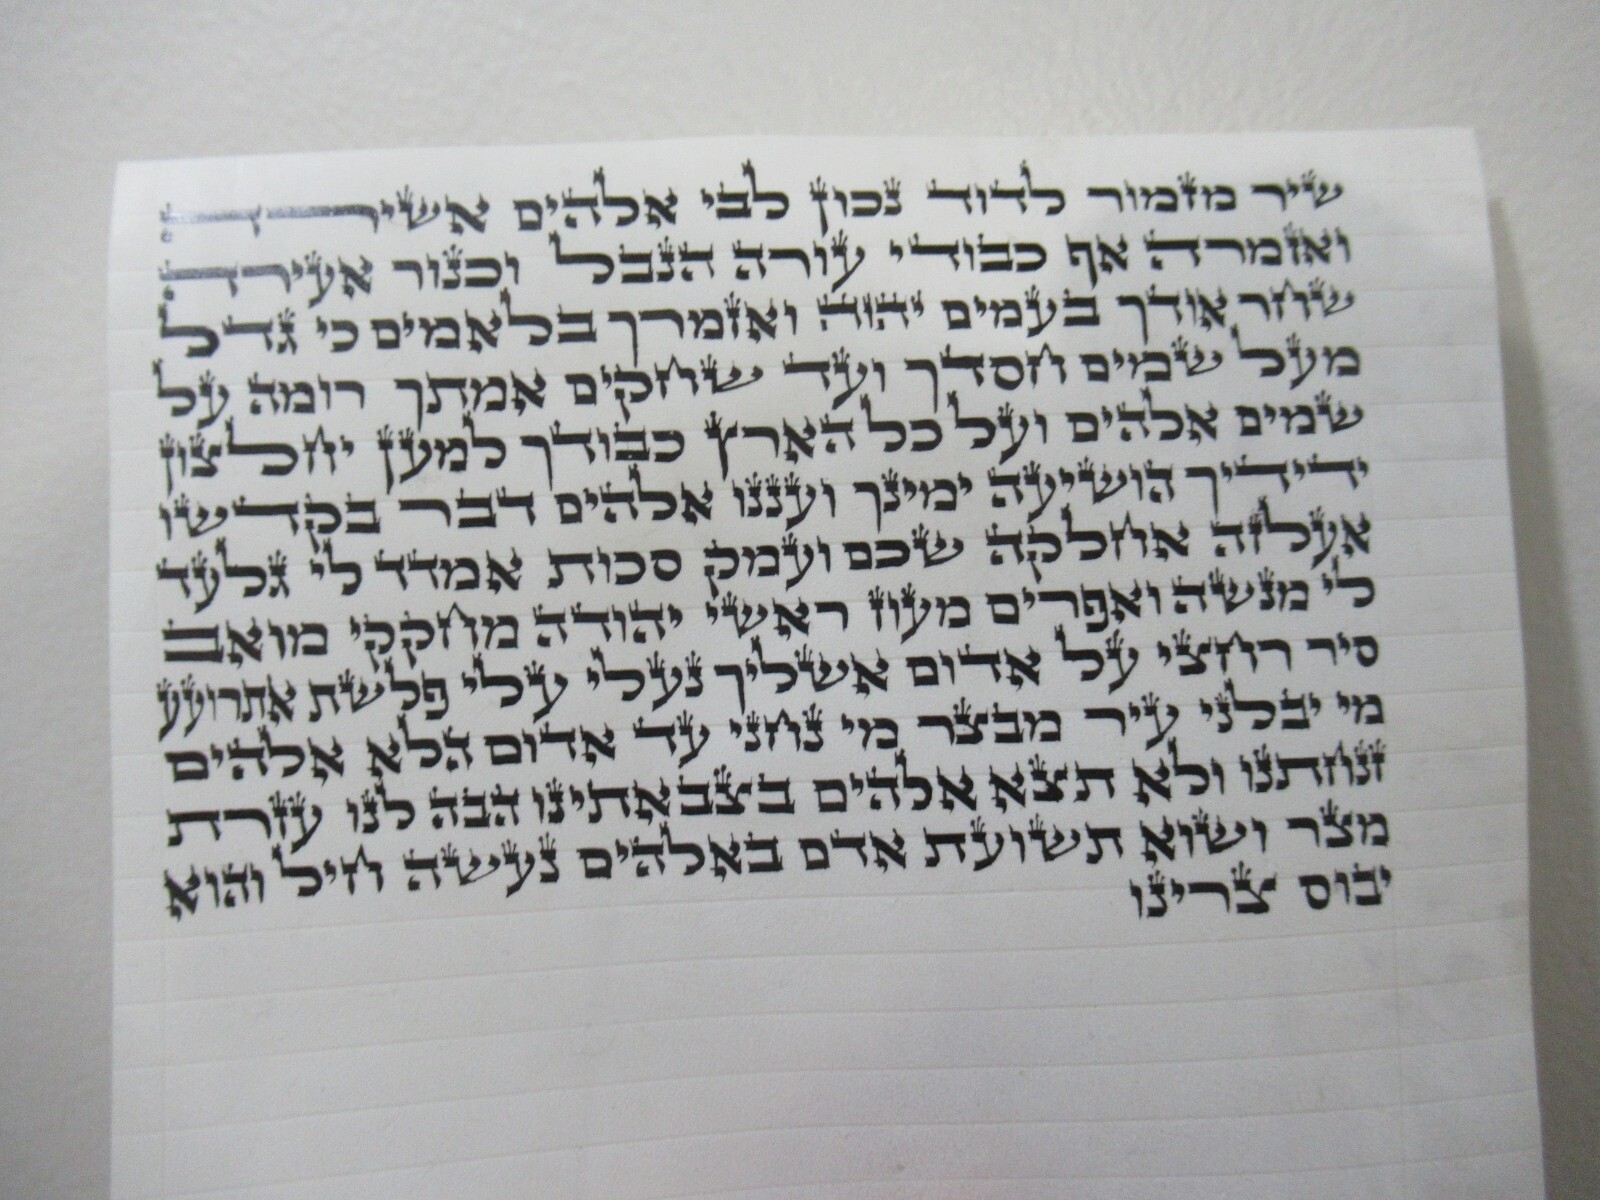 שיר מזמור לדוד נכון לבי אלהים אשירה
ואזמרה אף כבודי עורה הנבל וכנור אעירה
שחר אודך בעמים יהוה ואזמרך בלאמים כי גדל
מעל שמים חסדך ועד שחקים אמתך רומה על
שמים אלהים ועל כל הארץ כבודך למען יחלצון
ידידיך הושיעה ימינך ועננו אלהים דבר בקדשו
אעלזה אחלקה שכם ועמק סכות אמדד לי גלעד
לי מנשה ואפרים מעוז ראשי יהודה מחקקי מואב
סיר רחצי על אדום אשליך נעלי עלי פלשת אתרועע
מי יבלני עיר מבצר מי נחני עד אדום הלא אלהים
זנחתנו ולא תצא אלהים בצבאתינו הבה לנו עזרת
מצר ושוא תשועת אדם באלהים נעשה חיל והוא
יבוס צרינו